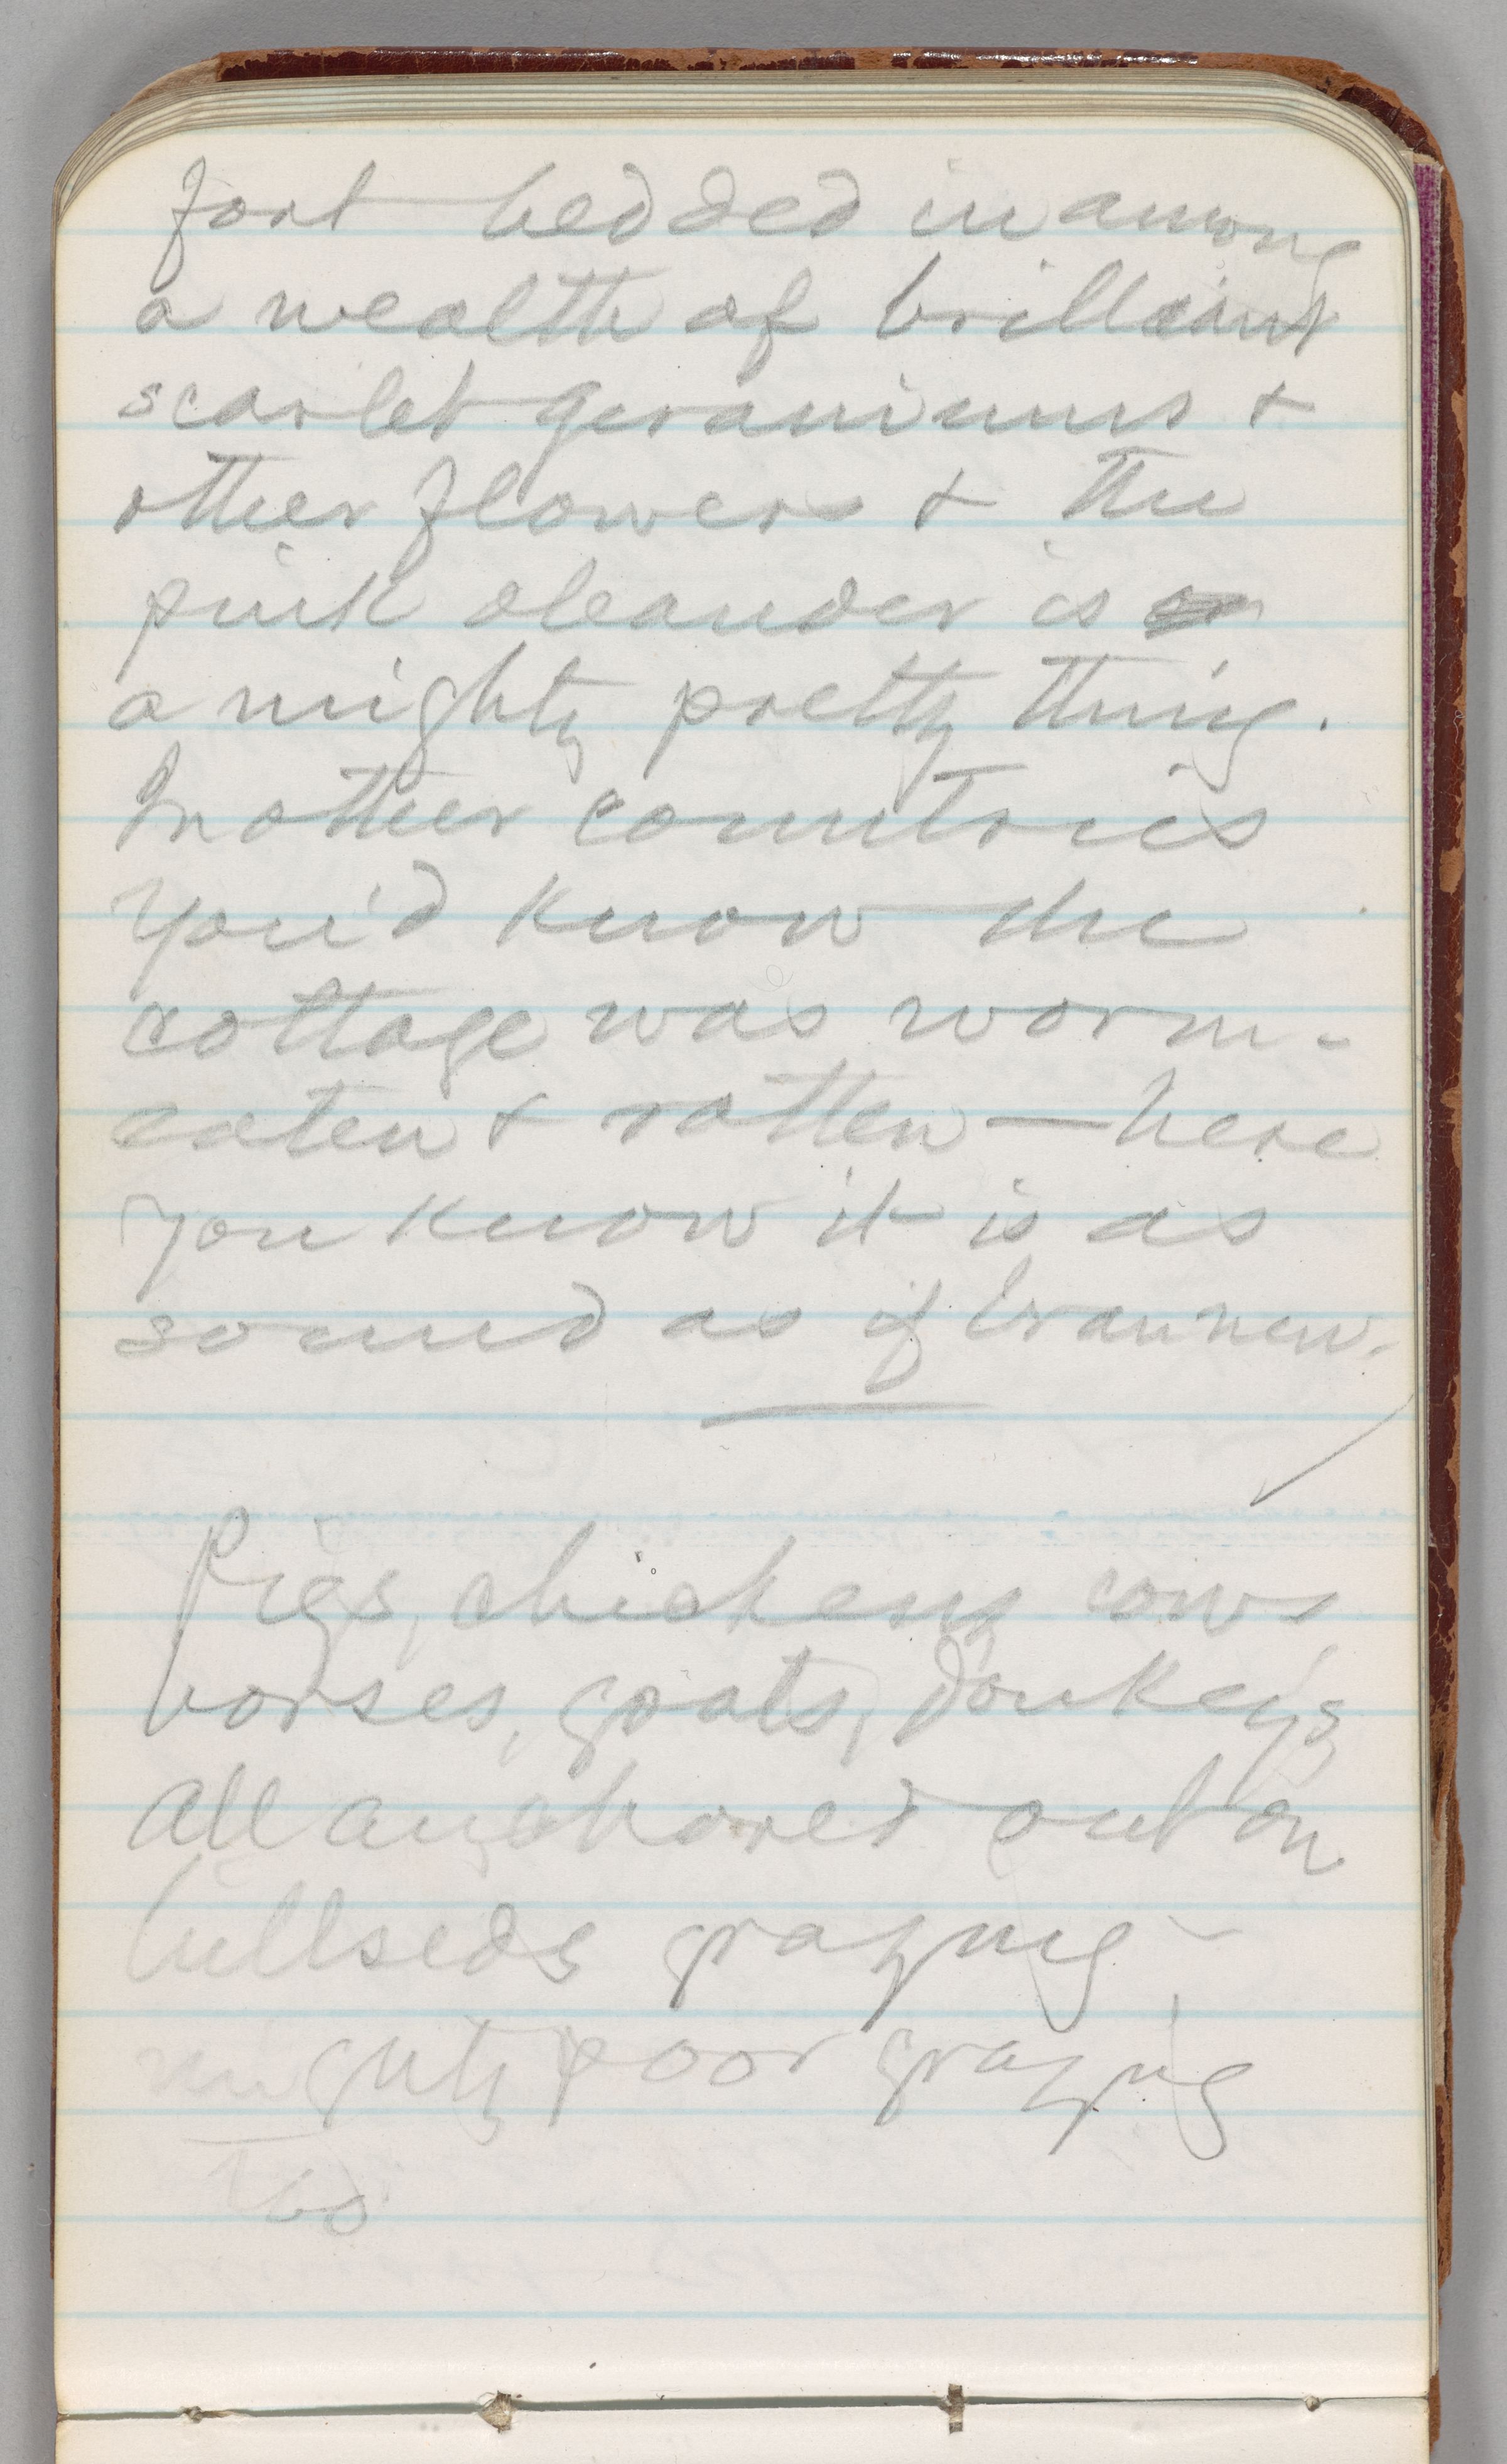 fort bedded in among
a wealth of brilliant
scarlet geraniums &
other flowers & the
pink oleander is
a mighty pretty thing.
In other countries
you'd know the
cottage was worm-
eaten & rotten — here
you know it is as
sound as if bran new.
Pigs, chickens, cows,
horses, goats, donkeys,
all anchored out on
hillseds grazing —
mighty poor grazing
too